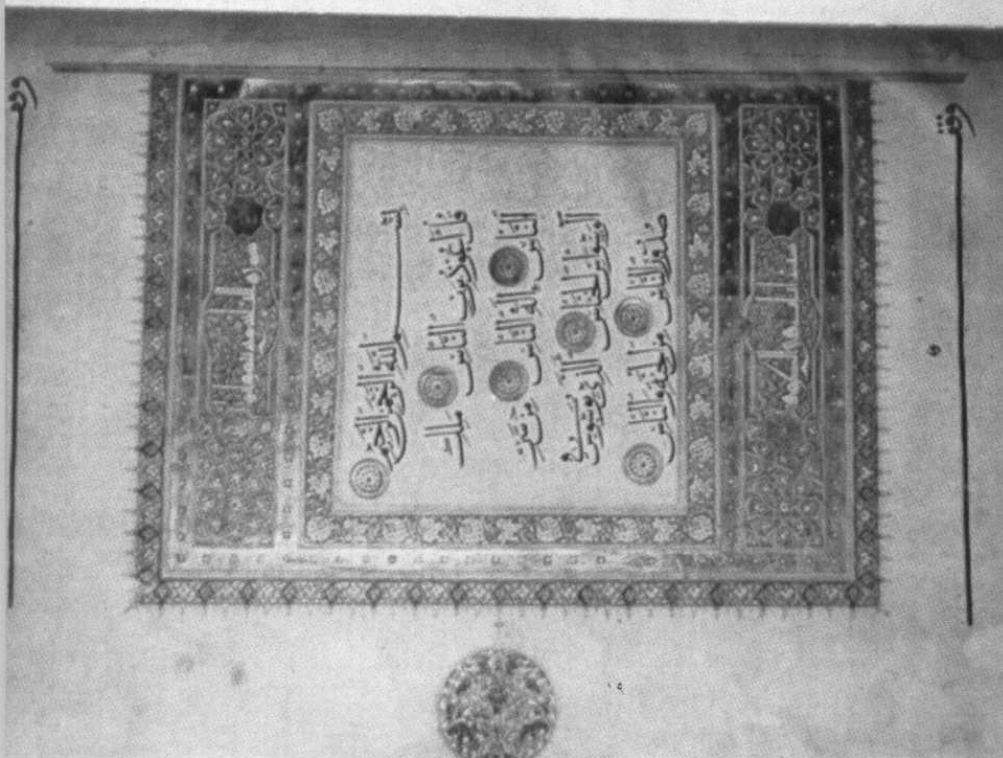 وقف
بسم الله الرحمن الرحيم
قل أعوذ برب الناس ملك
الناس إله الناس من شر
الوسواس الخناس الذي يوسوس في
صدور الناس من الجنة والناس
وقف